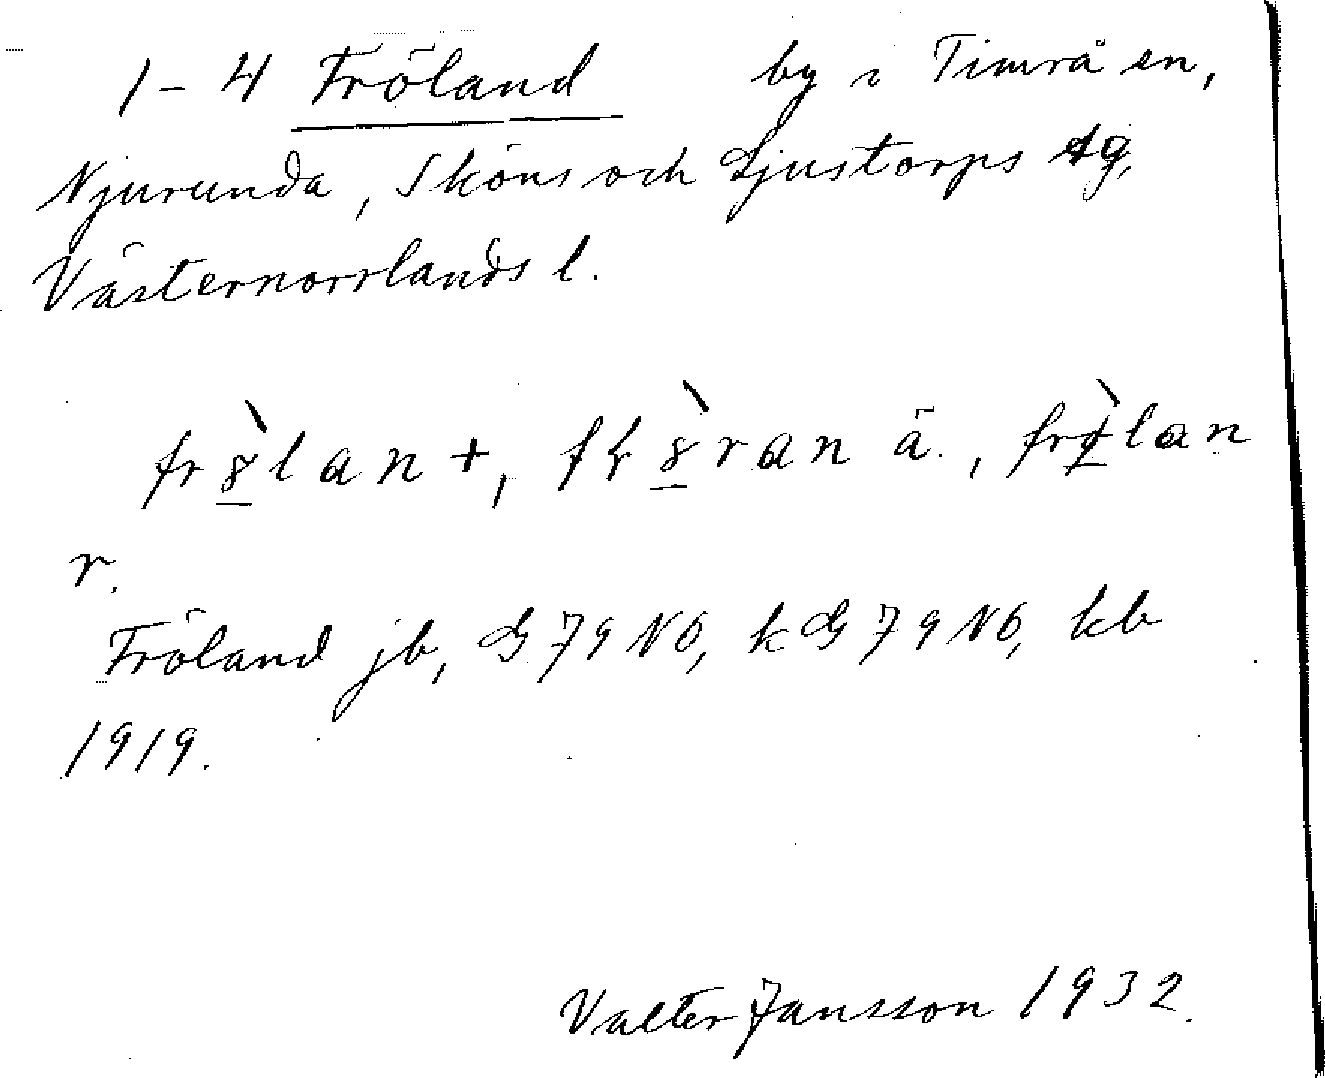 1-4 Fröland by i Timrå sn,
Njurunda, Sköns och Ljustorps tg,
Västernorrlands l.
frö̀lan +, ran ä., frö̀lan
r.
Fröland jb, G 79 NO, kG 79 NO, kb
1919.
Valter Jansson 1932.